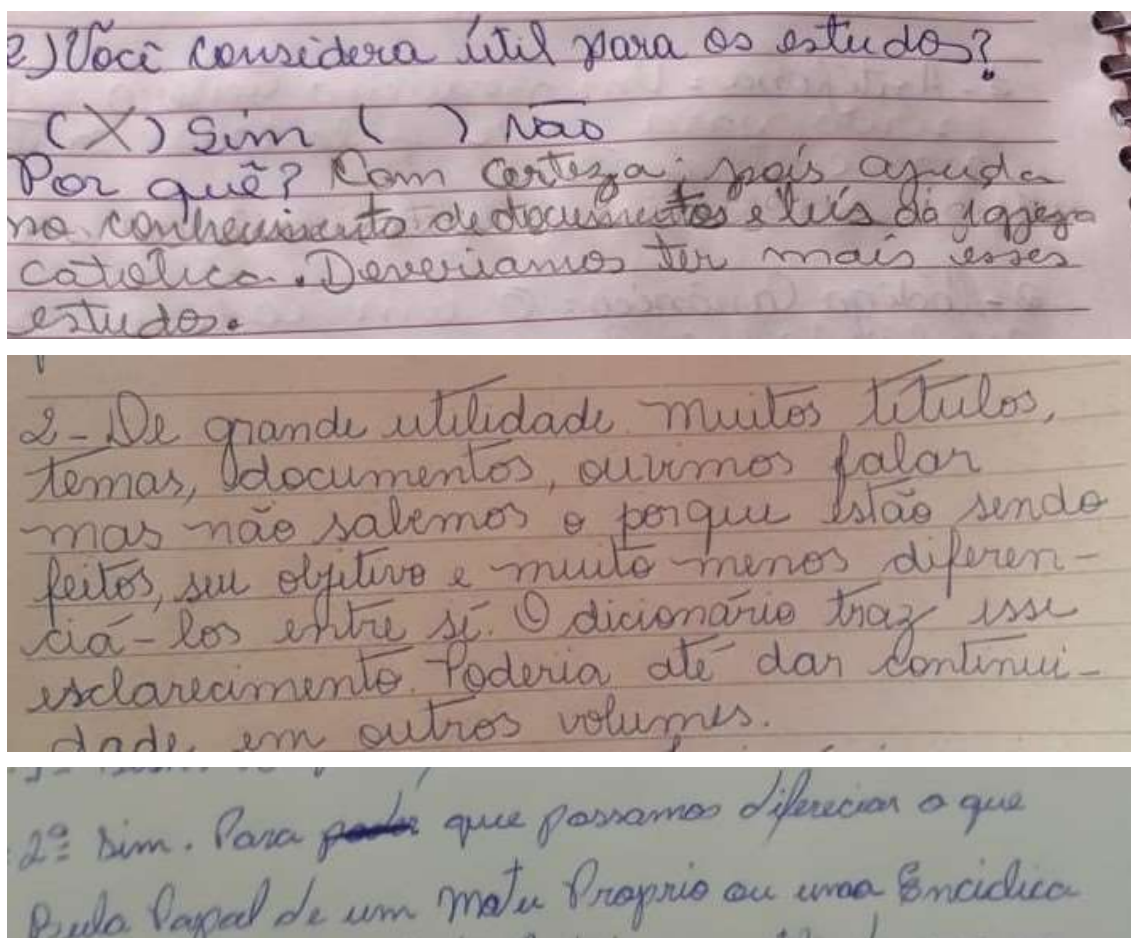 2) Você considera útil para os estudos?
(X) Sim ( ) Não
Por quê? Com certeza, pois ajuda
no conhecimento de documentos e leis da Igreja
católica. Deveriamos ter mais esses
estudos.
2- De grande utilidade muitos títulos,
temas, documentos, ouvimos falar
mas não sabemos o porque estão sendo
feitos, seu objetivo e muito menos diferen-
ciá-los entre sí. O dicionário traz isse
esclarecimento. Poderia até dar continui-
dade em outros volumes.
2ª Sim. Para que possamos difereciar o que
Bula Papal de um Motu Proprio ou uma Encidica